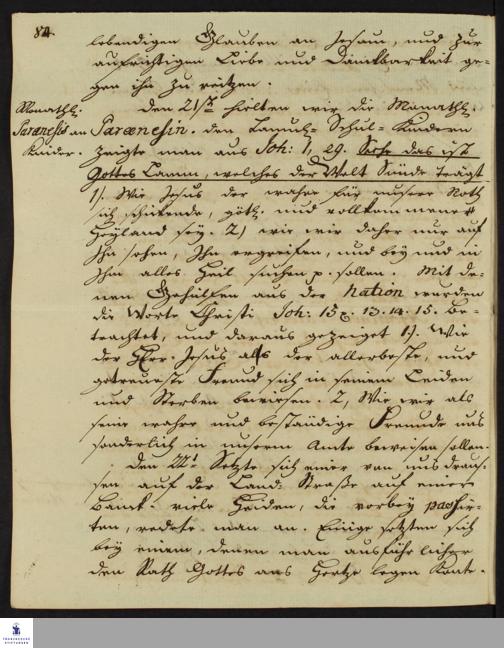 84.
lebendigen Glauben an Jesum, und zur
aufrichtigen Liebe und Danckbarkeit ge-
gen ihn zu reitzen.
Monathl.
Parænesis an
Kinder.
Den 21ten hielten wir die Monathl.
Parænesin. den Tamul. Schul-Kindern
zeigte man aus Joh: 1, 29. Siehe das ist
Gottes Lamm, welches der Welt Sünde trägt
1). Wie Jesus der wahre für unsere Noth
sich schickende, göttl. und vollkommener
Heyland sey. 2) wie wir daher nur auf
Ihn sehen, Ihn ergreifen, und bey und in
Ihm alles Heil suchen p. sollen. Mit de-
nen Gehülfen aus der Nation wurden
die Worte Christi Joh: 15 13. 14. 15. be-
trachtet, und daraus gezeiget 1). Wie
der HErr Jesus als der allerbeste, und
getreueste Freund sich in seinem Leiden
und Sterben bewiesen. 2, Wie wir als
seine wahre und beständige Freunde uns
sonderlich in unserm Amte beweisen sollen.
Den 22t Setzte sich einer von uns draus-
sen auf der Land-Straße auf einer
Banck. viele Heiden, die vorbey passir-
ten, redete man an. Einige setzten sich
bey einem, denen man ausführlicher
den Rath Gottes ans Hertze legen konte.
FRANCKESCHE
STIFTUNGEN